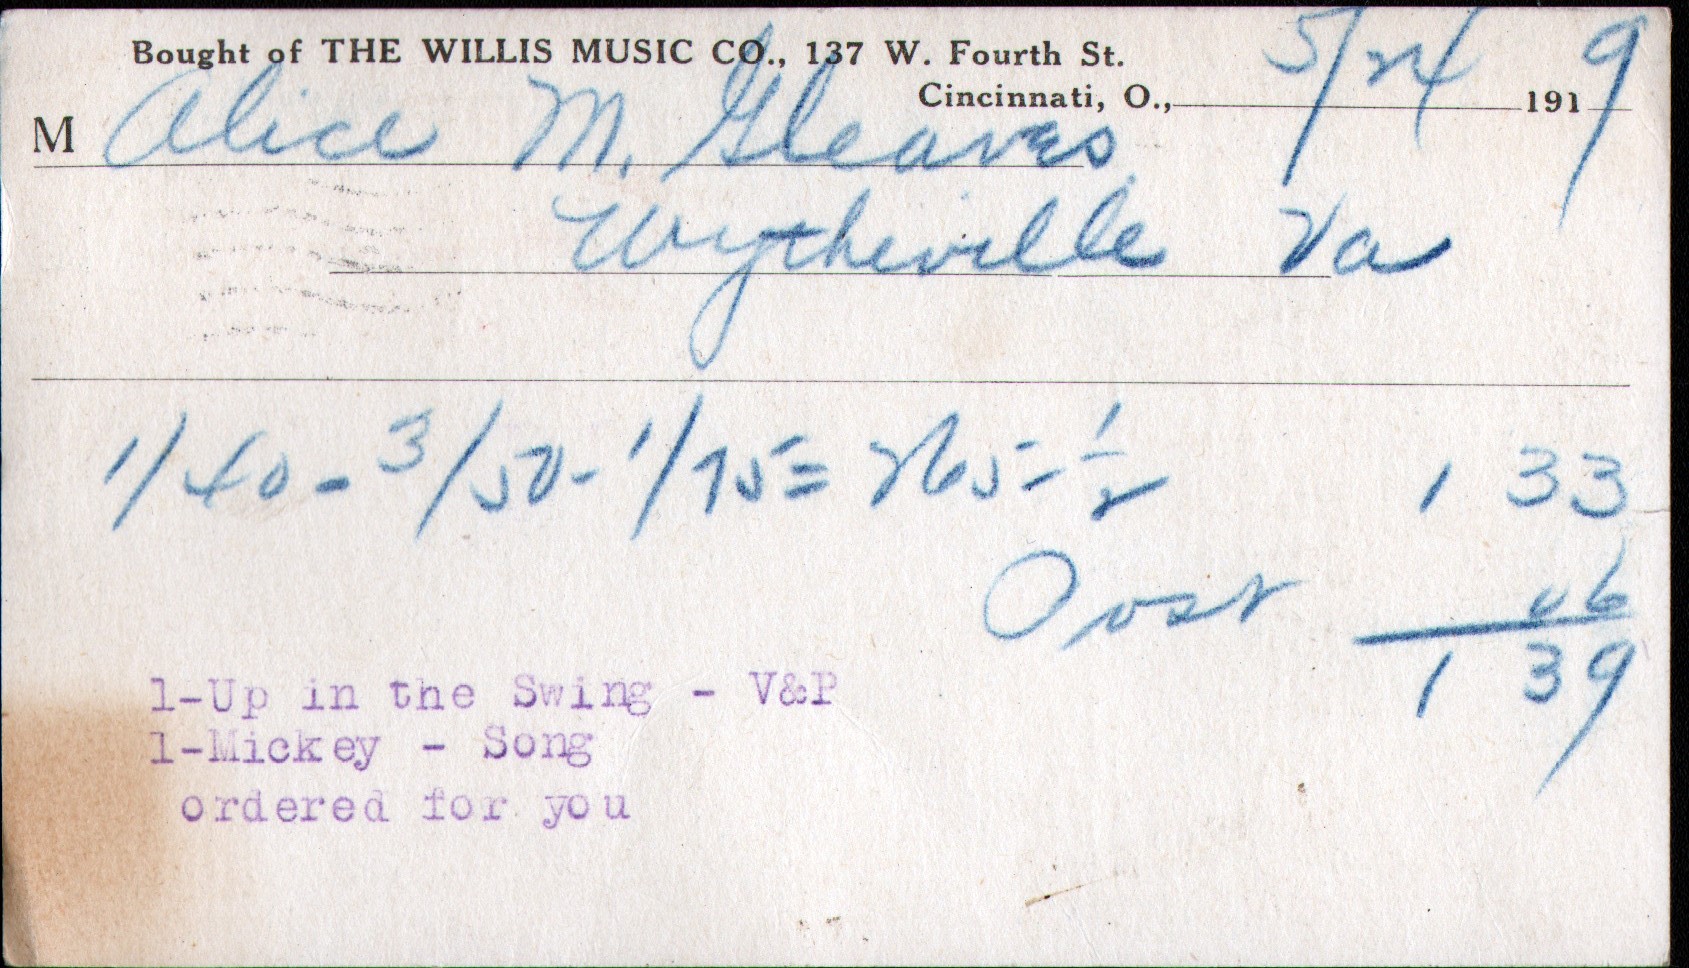 Bought of THE WILLIS MUSIC CO., 137 W. Fourth St.
Cincinnati, O., 5/24 1919
M Alice M. Gleaves
Wytheville Va
1/40 - 3/50 - 1/75 = 265 - 1/2 1 33
Post 06
1 39
1-Up in the Swing - V&P
1-Mickey - Song
ordered for you